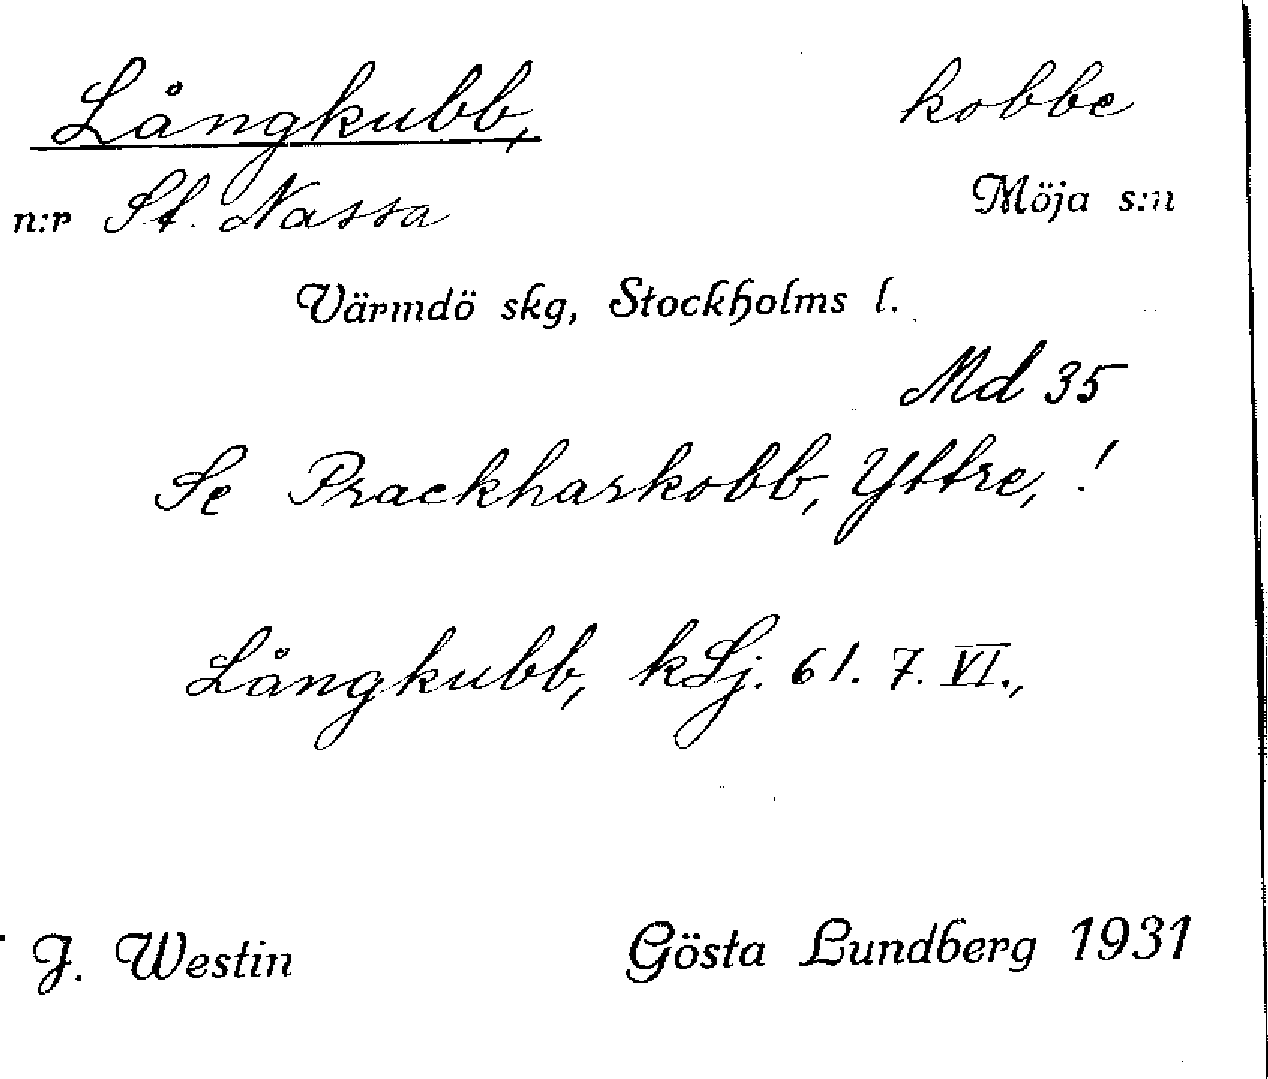 Långkubb, kobbe
n:r St. Nassa Möja s:n
Värmdö skg, Stockholms l.
Md 35
Se Prackharkobb, Yttre, !
Långkubb, kLj. 61. 7. VI.,
J. Westin Gösta Lundberg 1931